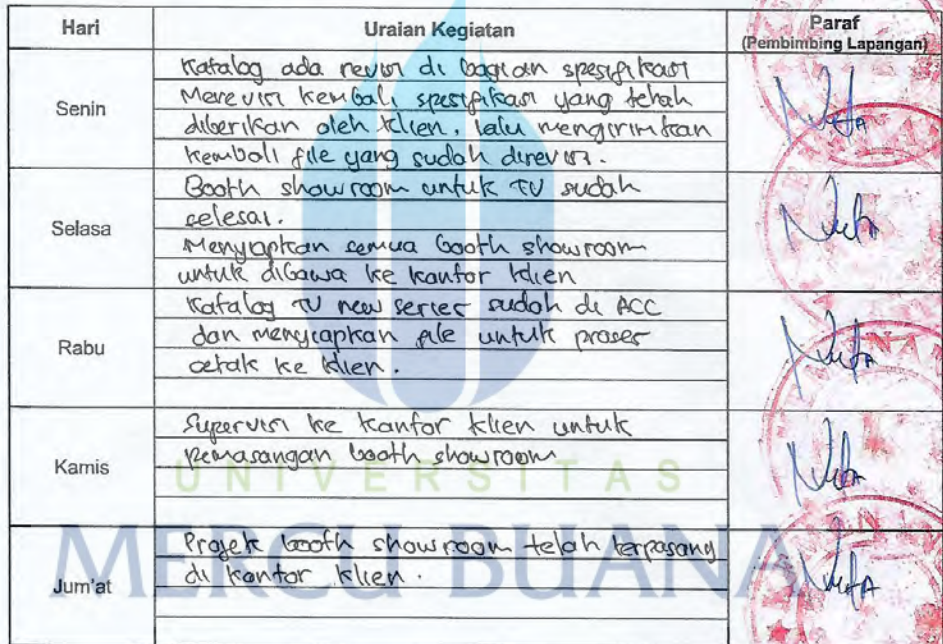 Hari Uraian Kegiatan Paraf
(Pembimbing Lapangan)
Katalog ada revisi di bagian spesifikasi
Senin
Merevisi kembali spesifikasi yang telah
diberikan oleh klien, lalu mengirimkan
kembali file yang sudah direvisi.
Booth showroom untuk TV sudah
Selasa
selesai.
Menyiapkan semua booth showroom
untuk dibawa ke kantor klien
Katalog TV new series sudah di ACC
Rabu
dan menyiapkan file untuk proses
cetak ke klien.
Supervisi ke kantor klien untuk
Kamis
pemasangan booth showroom
UNIVERSITAS
MERCU BUANA
Projek booth showroom telah terpasang
Jum'at
di kantor klien.